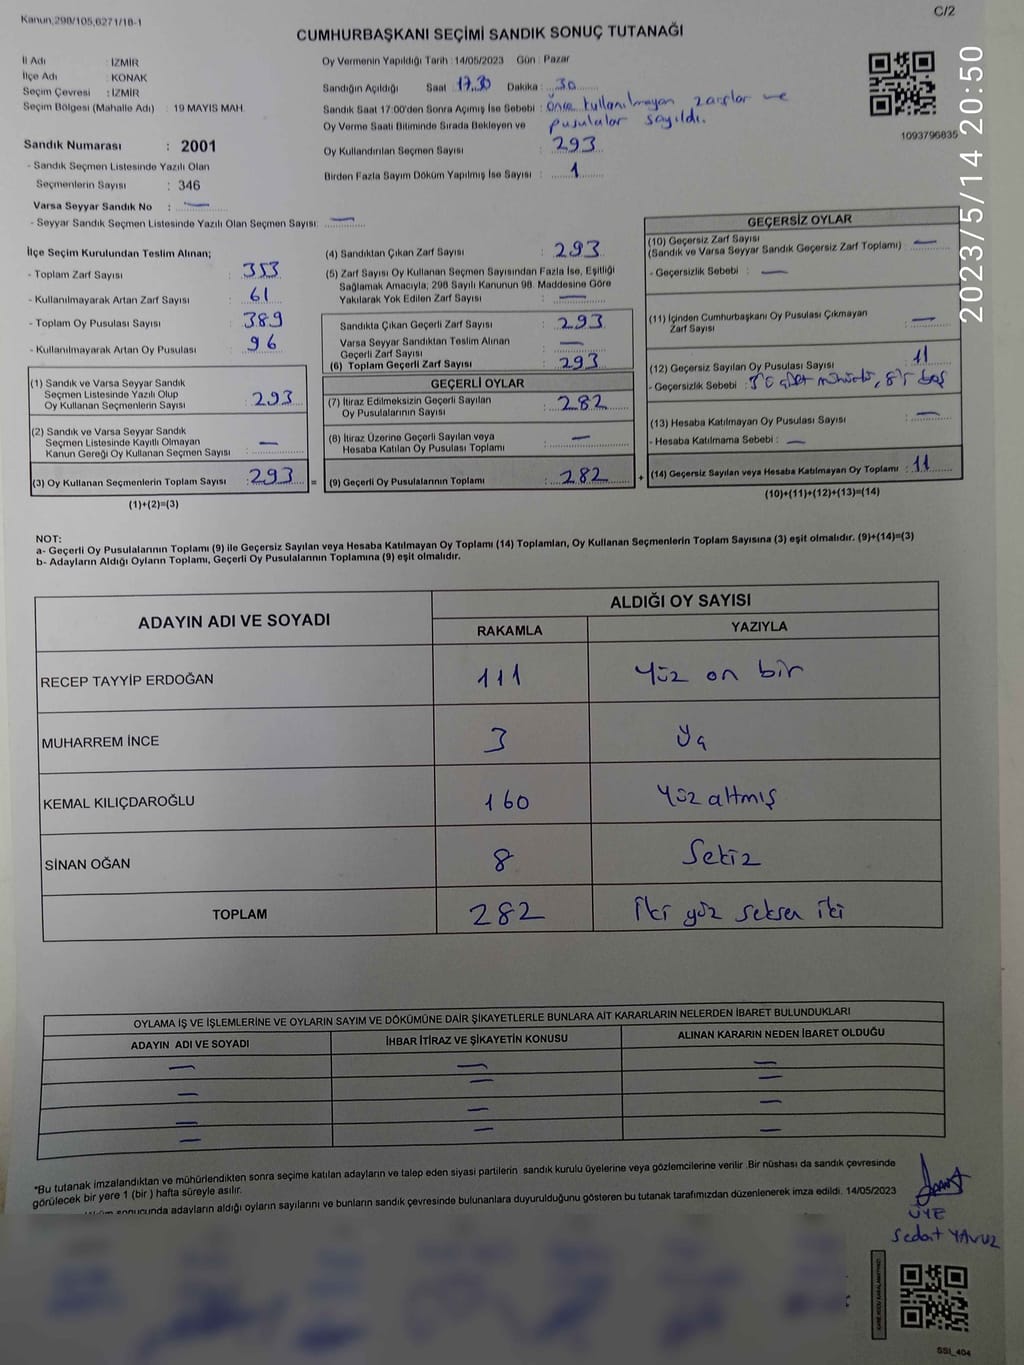 Kanun,298/105,6271/18-1
C/2
CUMHURBAŞKANI SEÇİMİ SANDIK SONUÇ TUTANAĞI
İl Adı : İZMİR
İlçe Adı : KONAK
Seçim Çevresi : İZMİR
Seçim Bölgesi (Mahalle Adı) : 19 MAYIS MAH.
Sandık Numarası : 2001
- Sandık Seçmen Listesinde Yazılı Olan
Seçmenlerin Sayısı : 346
Varsa Seyyar Sandık No : —
- Seyyar Sandık Seçmen Listesinde Yazılı Olan Seçmen Sayısı: —
Oy Vermenin Yapıldığı Tarih : 14/05/2023 Gün : Pazar
Sandığın Açıldığı Saat : 17.30 Dakika : 30
Sandık Saat 17:00'den Sonra Açımış İse Sebebi : Önce kullanılmayan zarflar ve
Oy Verme Saati Bitiminde Sırada Bekleyen ve pusulalar sayıldı.
Oy Kullandırılan Seçmen Sayısı : 293
Birden Fazla Sayım Döküm Yapılmış İse Sayısı : 1
1093796835
2023/5/14 20:50
İlçe Seçim Kurulundan Teslim Alınan;
- Toplam Zarf Sayısı : 353
- Kullanılmayarak Artan Zarf Sayısı : 61
- Toplam Oy Pusulası Sayısı : 389
- Kullanılmayarak Artan Oy Pusulası : 96
(1) Sandık ve Varsa Seyyar Sandık
Seçmen Listesinde Yazılı Olup
Oy Kullanan Seçmenlerin Sayısı : 293
(2) Sandık ve Varsa Seyyar Sandık
Seçmen Listesinde Kayıtlı Olmayan
Kanun Gereği Oy Kullanan Seçmen Sayısı : —
(3) Oy Kullanan Seçmenlerin Toplam Sayısı : 293 =
(1)+(2)=(3)
(4) Sandıktan Çıkan Zarf Sayısı : 293
(5) Zarf Sayısı Oy Kullanan Seçmen Sayısından Fazla İse, Eşitliği
Sağlamak Amacıyla; 298 Sayılı Kanunun 98. Maddesine Göre
Yakılarak Yok Edilen Zarf Sayısı : —
Sandıkta Çıkan Geçerli Zarf Sayısı : 293
Varsa Seyyar Sandıktan Teslim Alınan
Geçerli Zarf Sayısı : —
(6) Toplam Geçerli Zarf Sayısı : 293
GEÇERLİ OYLAR
(7) İtiraz Edilmeksizin Geçerli Sayılan
Oy Pusulalarının Sayısı : 282
(8) İtiraz Üzerine Geçerli Sayılan veya
Hesaba Katılan Oy Pusulası Toplamı : —
(9) Geçerli Oy Pusulalarının Toplamı : 282 +
GEÇERSİZ OYLAR
(10) Geçersiz Zarf Sayısı
(Sandık ve Varsa Seyyar Sandık Geçersiz Zarf Toplamı) : —
- Geçersizlik Sebebi : —
(11) İçinden Cumhurbaşkanı Oy Pusulası Çıkmayan
Zarf Sayısı : —
(12) Geçersiz Sayılan Oy Pusulası Sayısı : 11
- Geçersizlik Sebebi :
(13) Hesaba Katılmayan Oy Pusulası Sayısı : —
- Hesaba Katılmama Sebebi : —
(14) Geçersiz Sayılan veya Hesaba Katılmayan Oy Toplamı : 11
(10)+(11)+(12)+(13)=(14)
NOT:
a- Geçerli Oy Pusulalarının Toplamı (9) ile Geçersiz Sayılan veya Hesaba Katılmayan Oy Toplamı (14) Toplamları, Oy Kullanan Seçmenlerin Toplam Sayısına (3) eşit olmalıdır. (9)+(14)=(3)
b- Adayların Aldığı Oyların Toplamı, Geçerli Oy Pusulalarının Toplamına (9) eşit olmalıdır.
ADAYIN ADI VE SOYADI
ALDIĞI OY SAYISI
RAKAMLA YAZIYLA
RECEP TAYYİP ERDOĞAN 111 Yüz on bir
MUHARREM İNCE 3 Üç
KEMAL KILIÇDAROĞLU 160 Yüz altmış
SİNAN OĞAN 8 Sekiz
TOPLAM 282 İki yüz seksen iki
OYLAMA İŞ VE İŞLEMLERİNE VE OYLARIN SAYIM VE DÖKÜMÜNE DAİR ŞİKAYETLERLE BUNLARA AİT KARARLARIN NELERDEN İBARET BULUNDUKLARI
ADAYIN ADI VE SOYADI İHBAR İTİRAZ VE ŞİKAYETİN KONUSU ALINAN KARARIN NEDEN İBARET OLDUĞU
*Bu tutanak imzalandıktan ve mühürlendikten sonra seçime katılan adayların ve talep eden siyasi partilerin sandık kurulu üyelerine veya gözlemcilerine verilir .Bir nüshası da sandık çevresinde
görülecek bir yere 1 (bir ) hafta süreyle asılır.
sonucunda adayların aldığı oyların sayılarını ve bunların sandık çevresinde bulunanlara duyurulduğunu gösteren bu tutanak tarafımızdan düzenlenerek imza edildi. 14/05/2023
ÜYE
Sedat YAVUZ
SSI_404